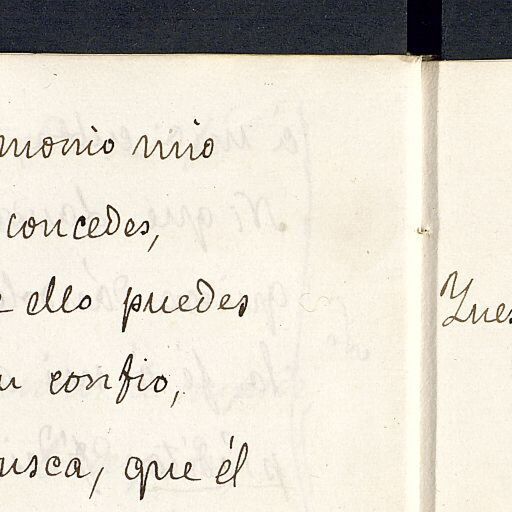 monio mio
concedes,
ello puedes
confio,
usca, que él
Ynes